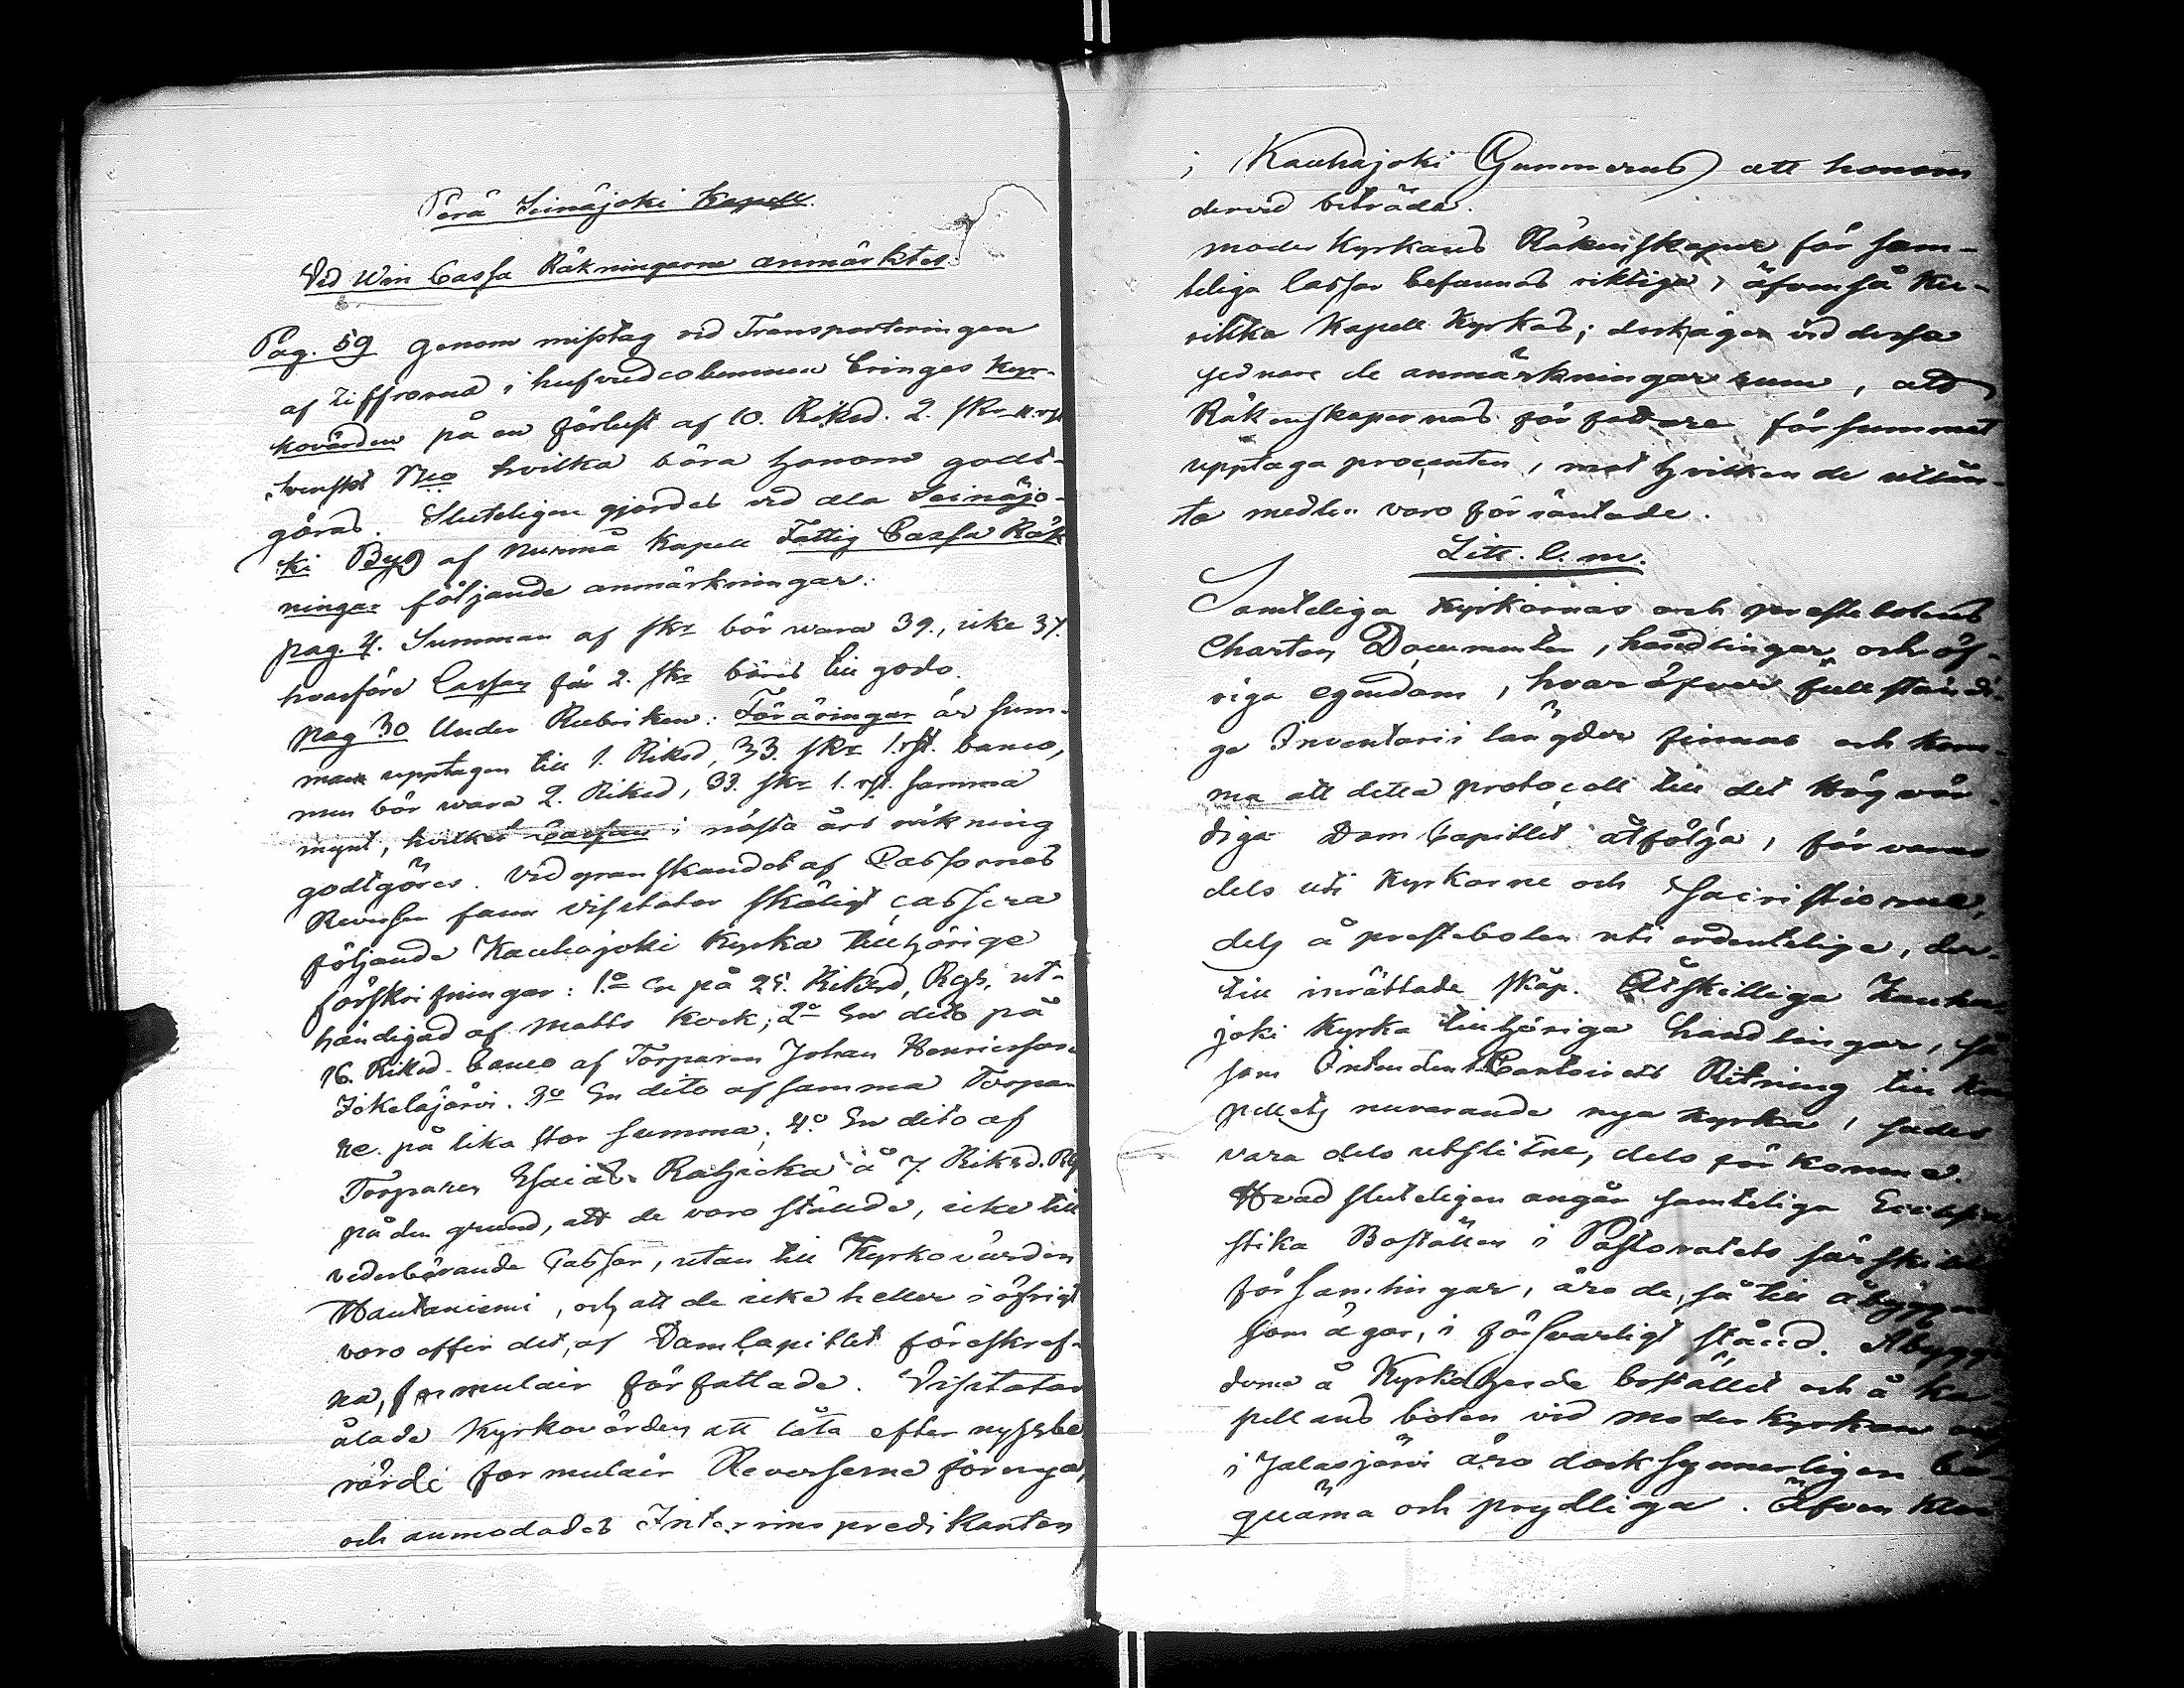 Perä Seinäjoki Kapell.
Vid Win Cassa Räkningarne anmärktes.
Pag. 59 Genom misstag vid Transporteringen
af Ziffrorna i hufvudcolumnen bringes Kyr-
kovärden på en förlust af 10. Riksd. 2. skr
svenskt Bco hvilka böra honom godt-
göras. Sluteligen gjordes vid dla Seinäjo-
ki By af Nurmå Kapell Fattig Cassa Räk
ningar följande anmärkningar:
pag. 4. Summan af skr bör wara 39., icke 37.
hvarföre Cassan för 2. skr böris till godo.
pag 30 Under Rubriken: Föräringar är sum-
man upptagen till 1. Riksd, 33. skr 1. rst. banco,
men bör wara 2. Riksd, 33. skr 1. rst. samma
mynt, hvilket Cassan i nästa års räkning
godtgöres. Vid granskandet af Cassornas
Reverser fann visitator skäligt cassera
följande Kauhajoki Kyrka tillhörige
förskrifningar: 1o en på 25. Riksd, Rgs, ut-
händigad af Matts Kock; 2o En dito på
16. Riksd. banco af Torparen Johan Henricsson
Jokelajärvi. 3o En dito af samma Torpa-
re på lika stor summa; 4o En dito af
Torparen Esaias å 7 Riksd. Rgs
på den grund, att de voro stälde, icke till
vederbörande Cassor, utan till Kyrkovärden
Hautaniemi, och att de icke heller i öfrigt
voro efter det, af DomCapitlet föreskref-
na, formulair författade. Visitator
ålade Kyrkovärden att låta efter nyssbe
rörde formulair Reverserne förnya,
och anmodades Interims predikanten
i Kauhajoki Gummerus att honom
dervid biträda.
moder Kyrkans Räkenskaper för sam-
teliga Cassor befunnos riktiga, äfvenså Ku-
rikka Kapell Kyrkas; dock äger vid dessa
sednare de anmärkningar rum, att
Räkenskapernas författare försummat
upptaga procenten, mot hvilken de utlån-
ta medlen voro förräntade.
Litt. l. m.
Samteliga Kyrkornas och prestebolens
Chartor, Documenter, handlingar och öf-
riga egendom, hvaröfver fullständi-
ge Inventarii längder finnas och kom-
ma att detta protocoll till det Högvör-
diga DomCapitlet åtfölja, förvaras
dels uti Kyrkorne och Sacristiorne,
dels å prestebolen uti ordenteliga, der-
till inrättade skåp. Åtskilliga Kauha
joki Kyrka tillhöriga handlingar, så
som Intendents Contoirets Ritning till Ka
pellets nuvarande nya Kyrka, sades
vara dels utslitne, dels förkomne.
Hvad sluteligen angår samteliga
stika Boställen i Pastoratets särskilda
församlingar, äro de, så till åbyggnad
som ägor, i försvarligt stånd. Åbygg
derne å Kyrkoherde bostället och å Ka-
pellans bolen vid moder Kyrkan och
i Jalasjärvi äro dock synnerligen be-
quäma och prydliga. Äfven